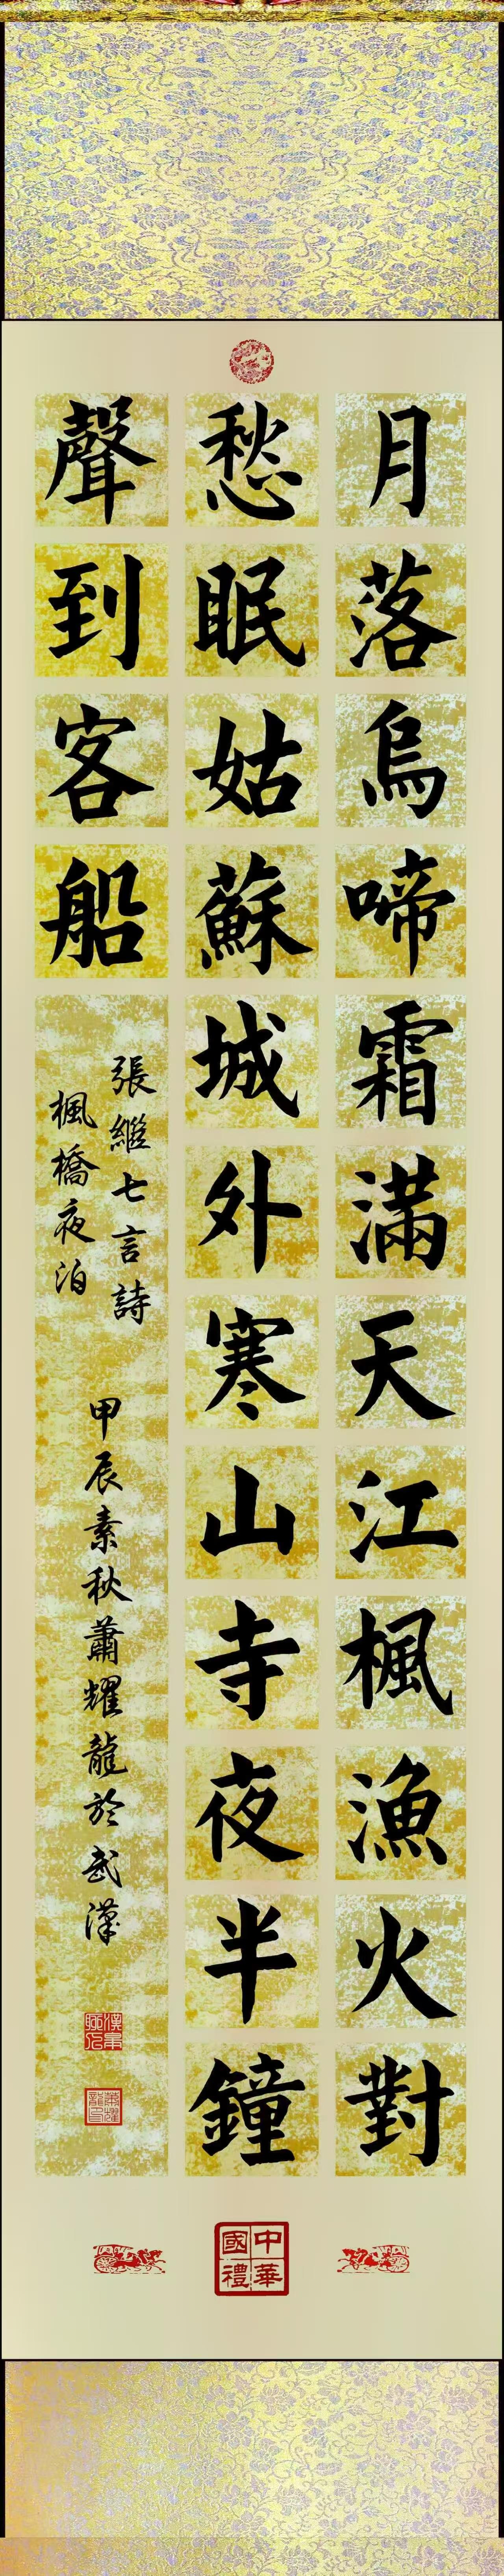 月落烏啼霜滿天江楓漁火對
愁眠姑蘇城外寒山寺夜半鐘
聲到客船
張繼七言詩
楓橋夜泊
甲辰素秋蕭耀龍於武漢
蕭耀龍印
中華國禮